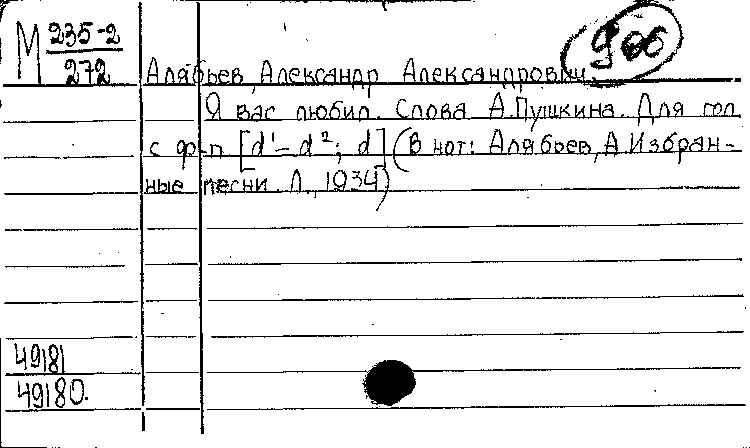 М 235-2
272
Алябьев, Александр Александрович.
Я вас любил. Слова А.Пушкина. Для гол.
с ф-п [d¹ – d²; d] (В нот: Алябьев, А. Избран-
ные песни. Л., 1934)
49181
49180.